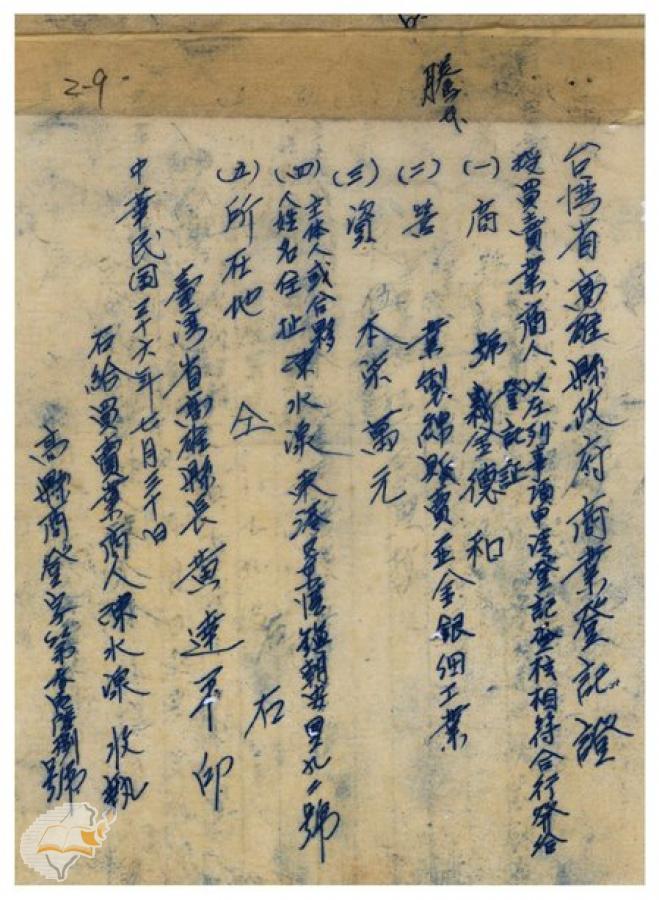 2-9
謄本
台湾省高雄縣政府商業登記證
授買賣業商人、以左列事項申請登記登核相符合行發給
登記証
(一)商號 義金德和
(二)营業 製綿販賣並金銀細工業
(三)資本 柒萬元
(四)主体人或合夥人姓名住址 陳水源 東港区東港鎮朝安里九〃號
(五)所在地 仝右
臺湾省高雄縣長黄達平印
中華民国三十六年七月三十日
右給買賣業商人陳水源收執
高縣商登字第 號